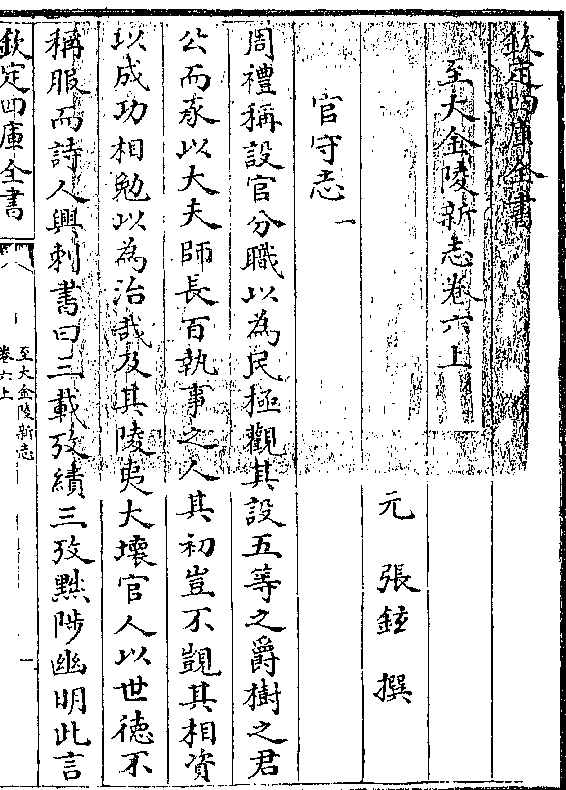 欽定四庫全書
至大金陵新志卷六上
元 張鉉 撰
官守志一
周禮稱設官分職以為民極觀其設五等之爵樹之君
公而承以大夫師長百執事之人其初豈不覬其相資
以成功相勉以為治哉及其陵夷大壞官人以世徳不
稱服而詩人興刺書曰三載攷績三攷黜陟幽明此言
欽定四庫全書
至大金陵新志
卷六上
一